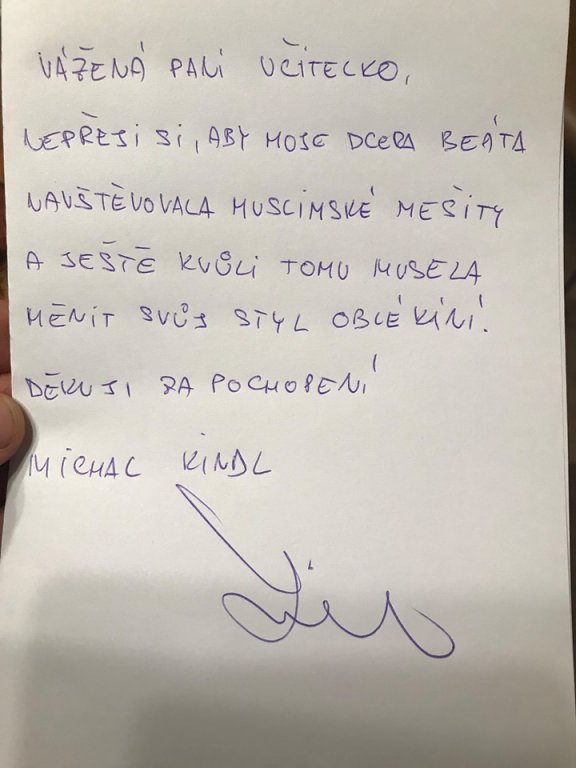 VÁŽENÁ PANI UČITELKO,
NEPŘEJI SI, ABY MOJE DCERA BEÁTA
NAVŠTĚVOVALA MUSLIMSKÉ MEŠITY
A JEŠTĚ KVŮLI TOMU MUSELA
MĚNIT SVŮJ STYL OBLÉKÁNÍ.
DĚKUJI ZA POCHOPENÍ
MICHAL KINDL